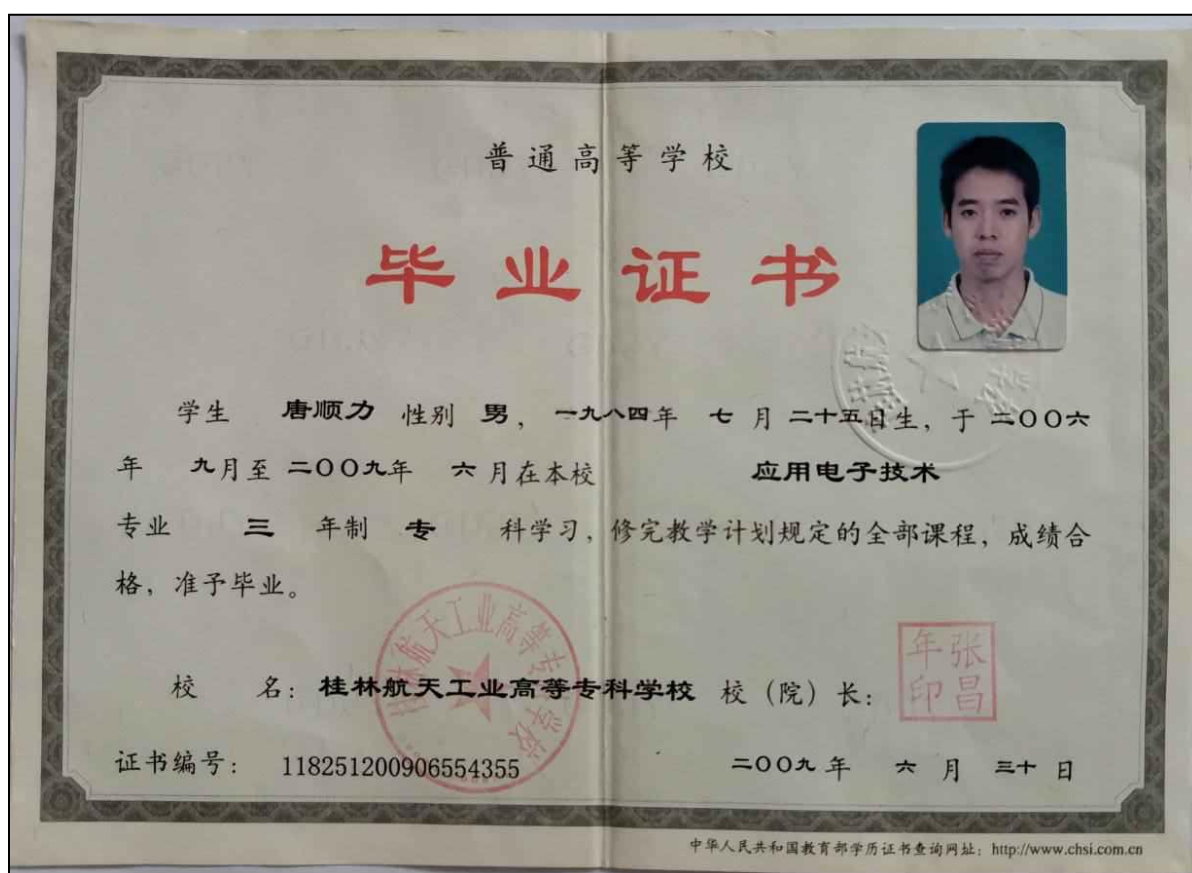 普通高等学校
毕业证书
学生 唐顺力 性别 男，一九八四年 七 月 二十五日生，于 二〇〇六
年 九月至 二〇〇九年 六 月在本校 应用电子技术
专业 三 年制 专 科学习，修完教学计划规定的全部课程，成绩合
格，准予毕业。
桂林航天工业高等专科学校
张昌年印
校 名：桂林航天工业高等专科学校 校（院）长：
证书编号： 118251200906554355 二〇〇九 年 六 月 三十 日
中华人民共和国教育部学历证书查询网址：http://www.chsi.com.cn